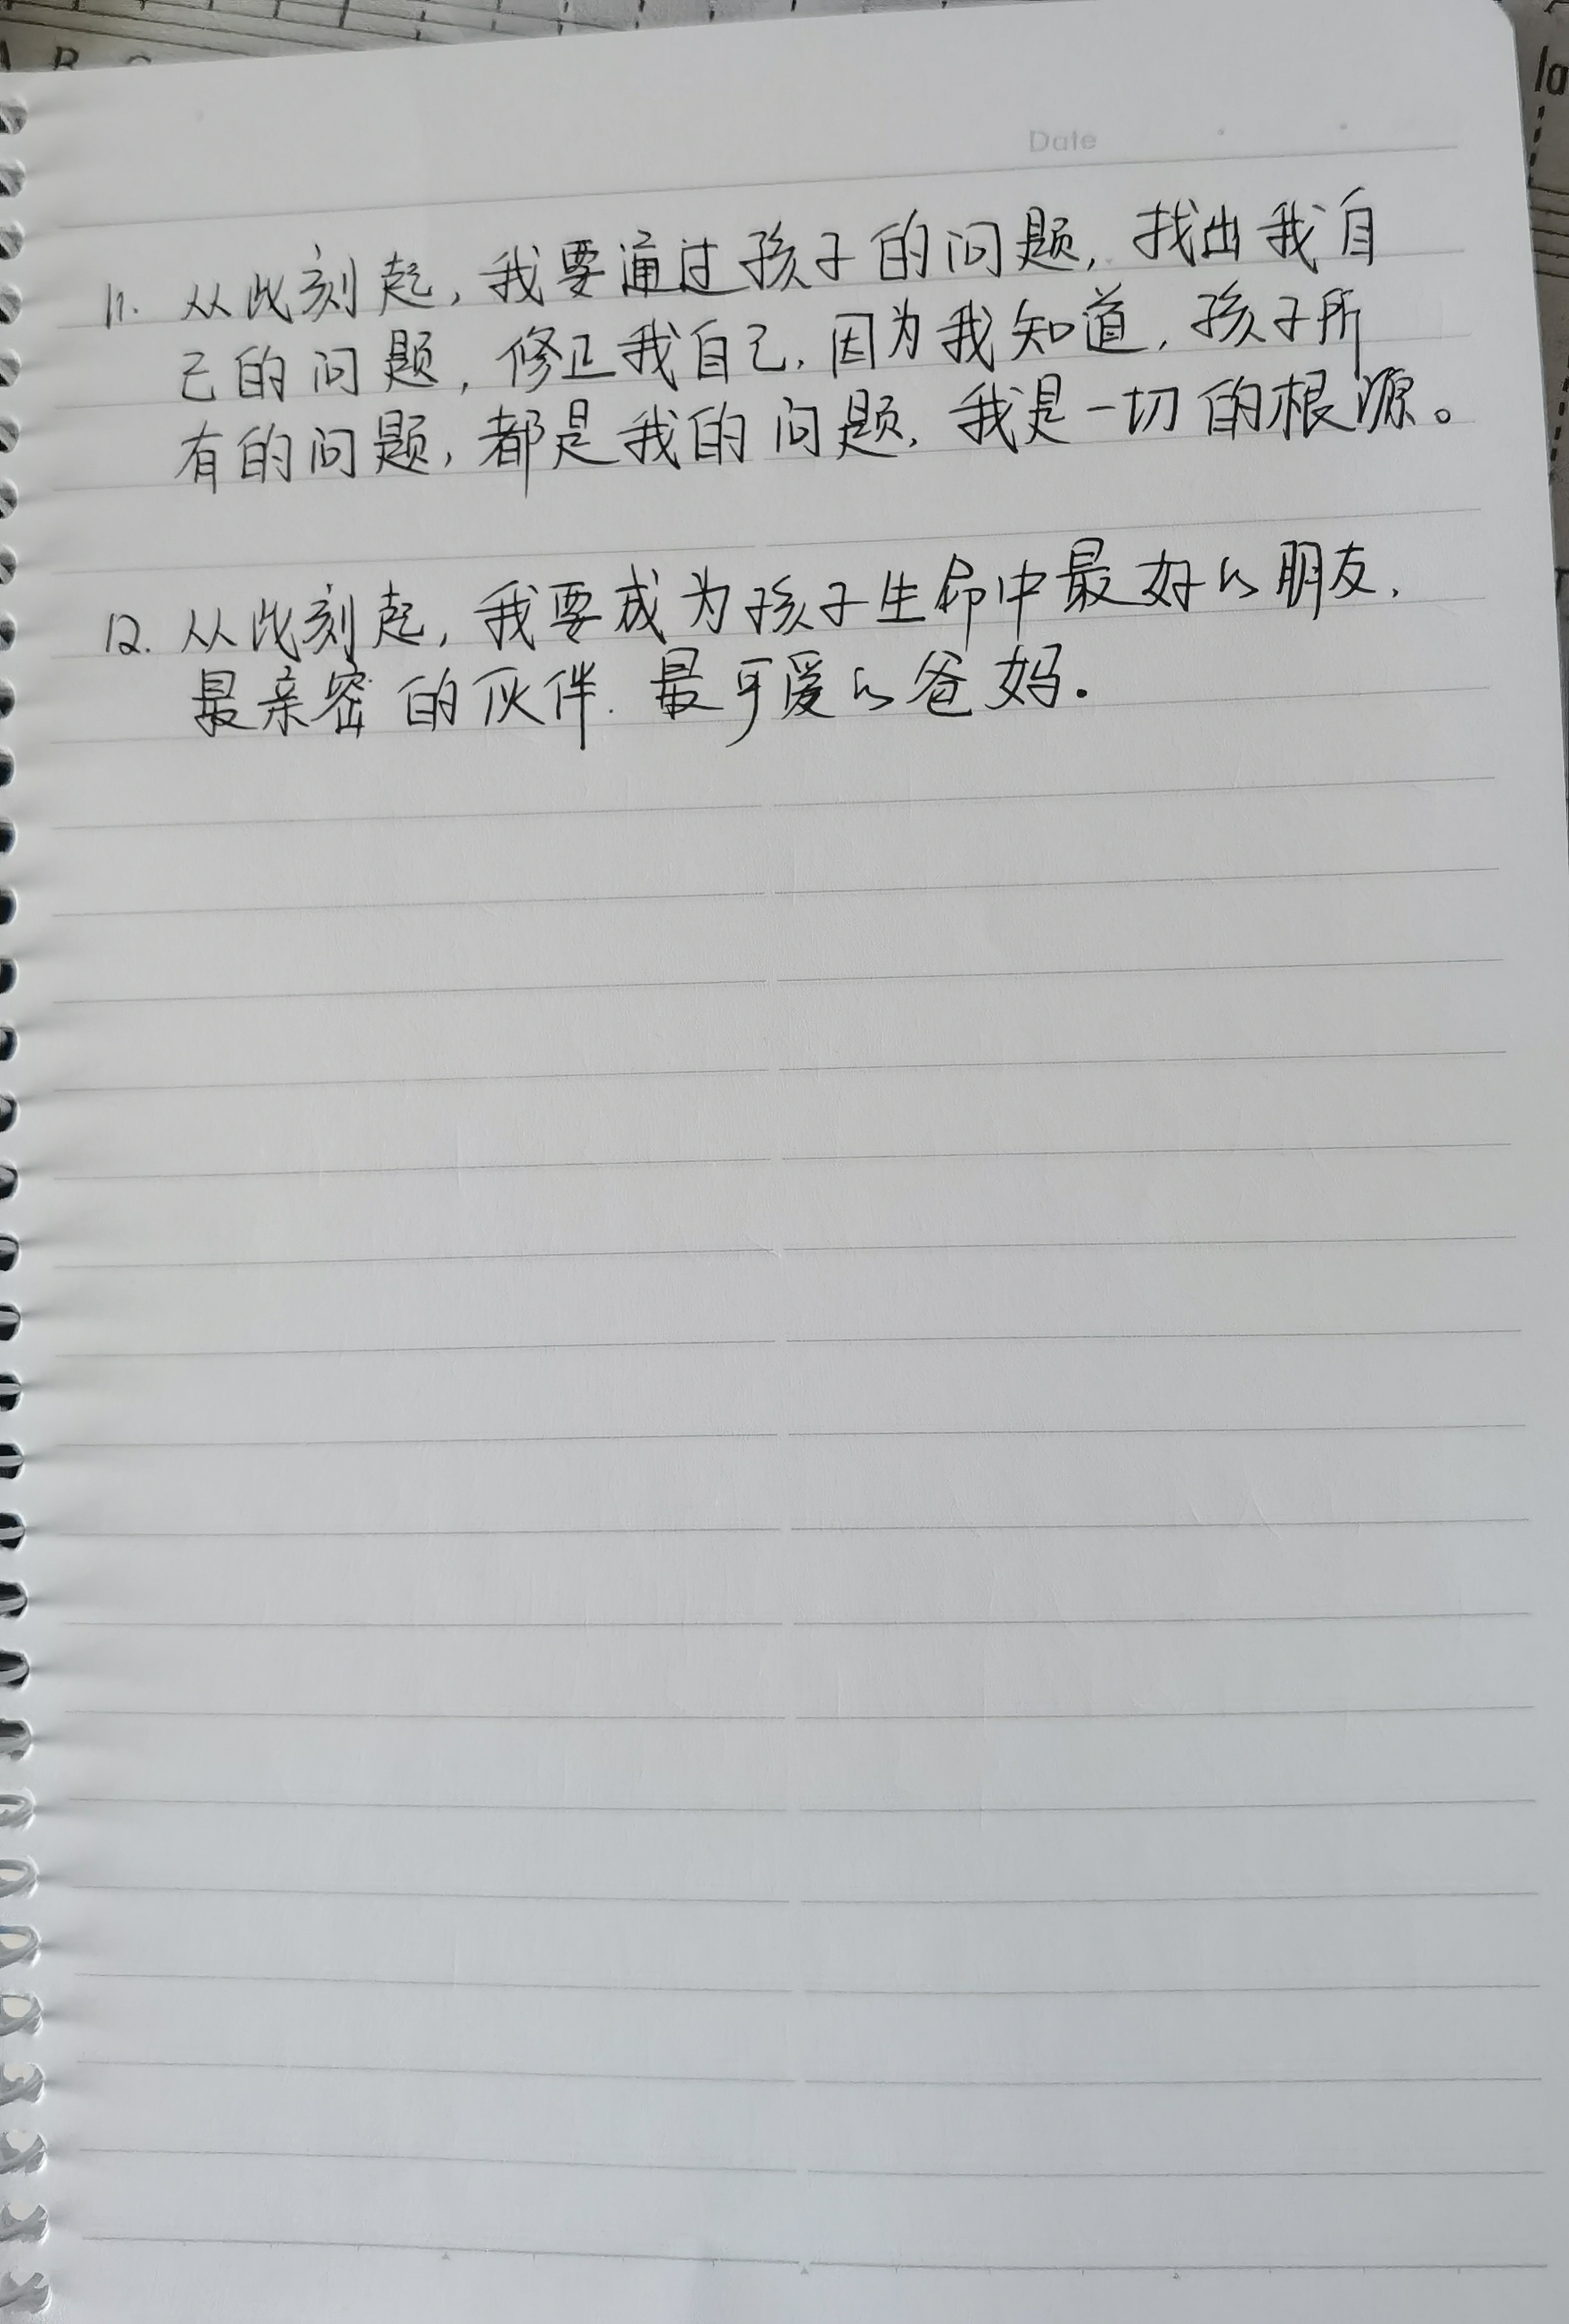 A B C
la
Date
11. 从此刻起,我要通过孩子的问题,找出我自
己的问题,修正我自己,因为我知道,孩子所
有的问题,都是我的问题,我是一切的根源。
12. 从此刻起,我要成为孩子生命中最好的朋友,
最亲密的伙伴.最可爱的爸妈.